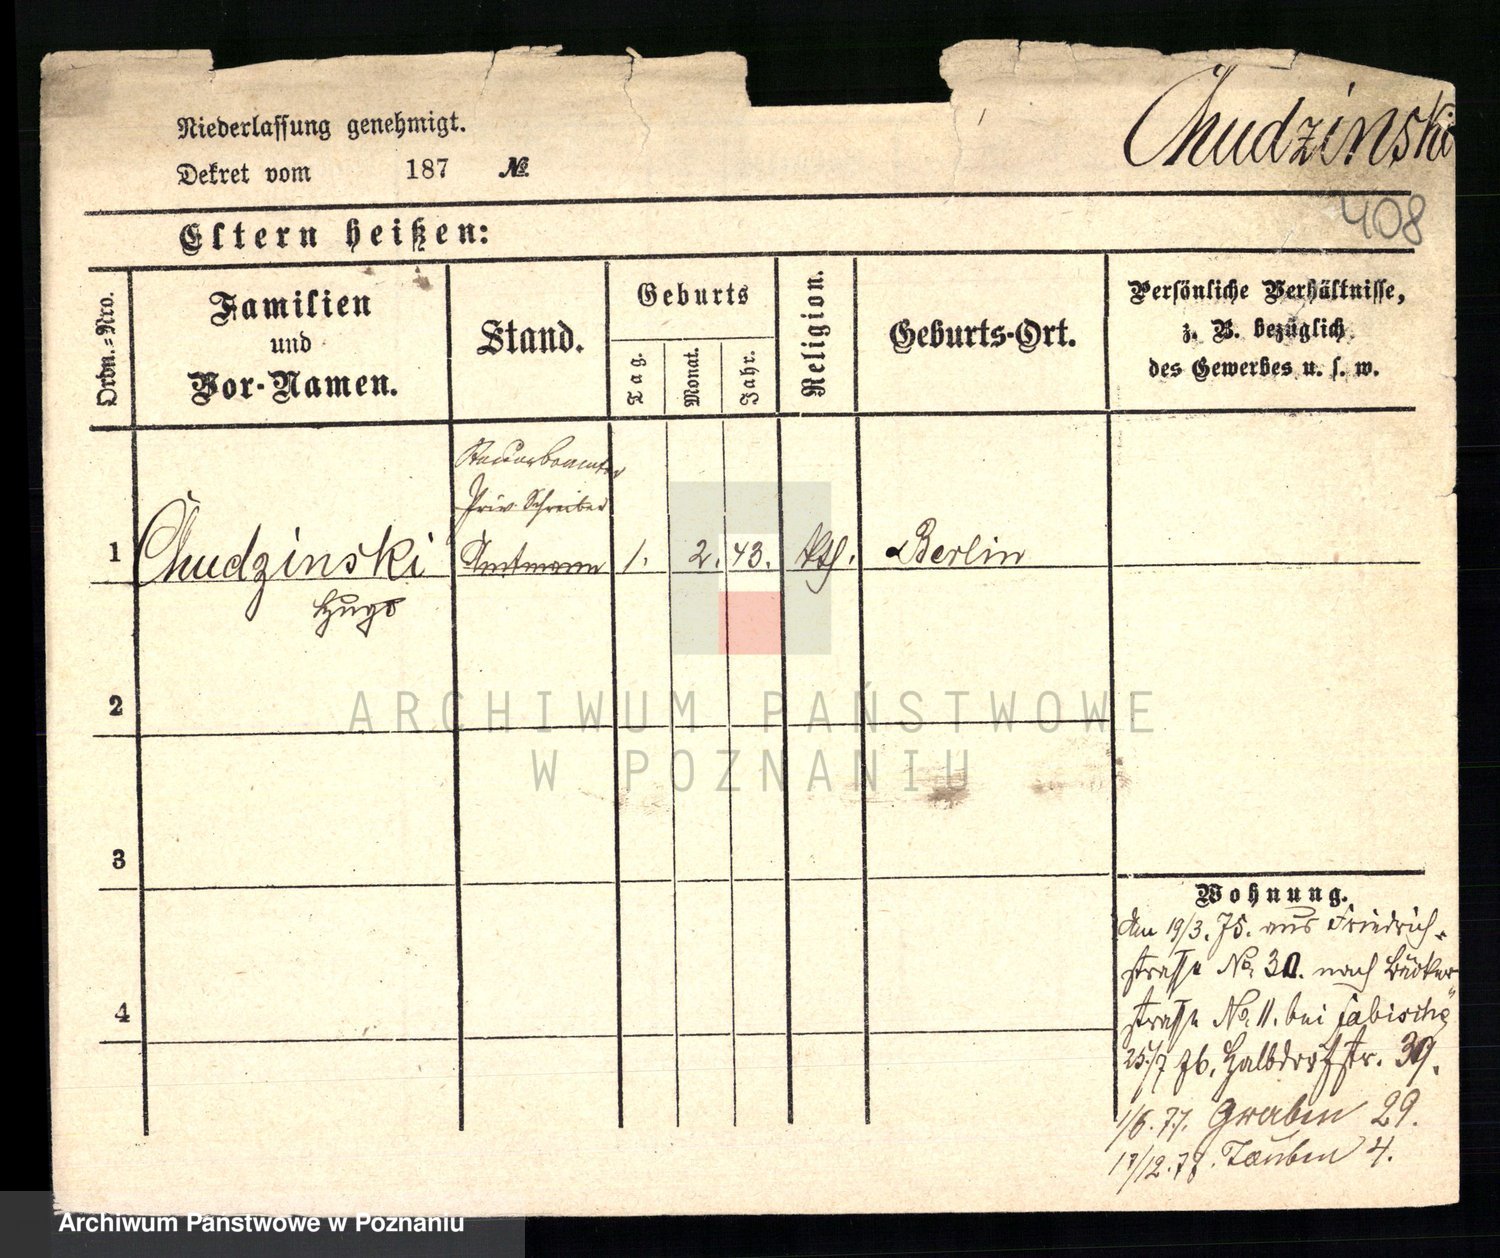 Chudzinski
Niederlassung genehmigt.
Dekret vom 187 №
408
Eltern heißen:
Ordn.=Nro.
Familien
und
Vor-Namen.
Stand.
Geburts
Tag.
Monat.
Jahr.
Religion.
Geburts-Ort.
Persönliche Verhältnisse,
z. B. bezüglich
des Gewerbes u. s. w.
Steuerbeamter
Priv. Schreiber
1 Chudzinski Amtmann 1. 2. 43. kth. Berlin
Hugo
2
3
4
Wohnung.
Am 19/3. 75. aus Friedrich-
strasse No. 30. nach Bäcker
strasse No. 11. bei Fabisch
25/7 76. Halbdorfstr. 39.
1/6. 77. Graben 29.
17/12. 78. Tauben 4.
ARCHIWUM PAŃSTWOWE
W POZNANIU
Archiwum Państwowe w Poznaniu